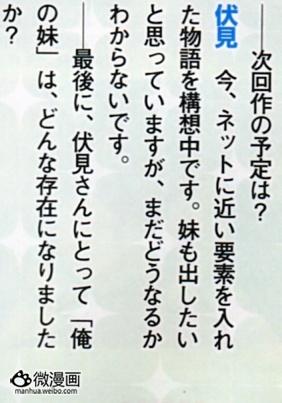 ――次回作の予定は？
伏見　今、ネットに近い要素を入れ
た物語を構想中です。妹も出したい
と思っていますが、まだどうなるか
わからないです。
――最後に、伏見さんにとって「俺
の妹」は、どんな存在になりました
か？
微漫画
manhua.weibo.com